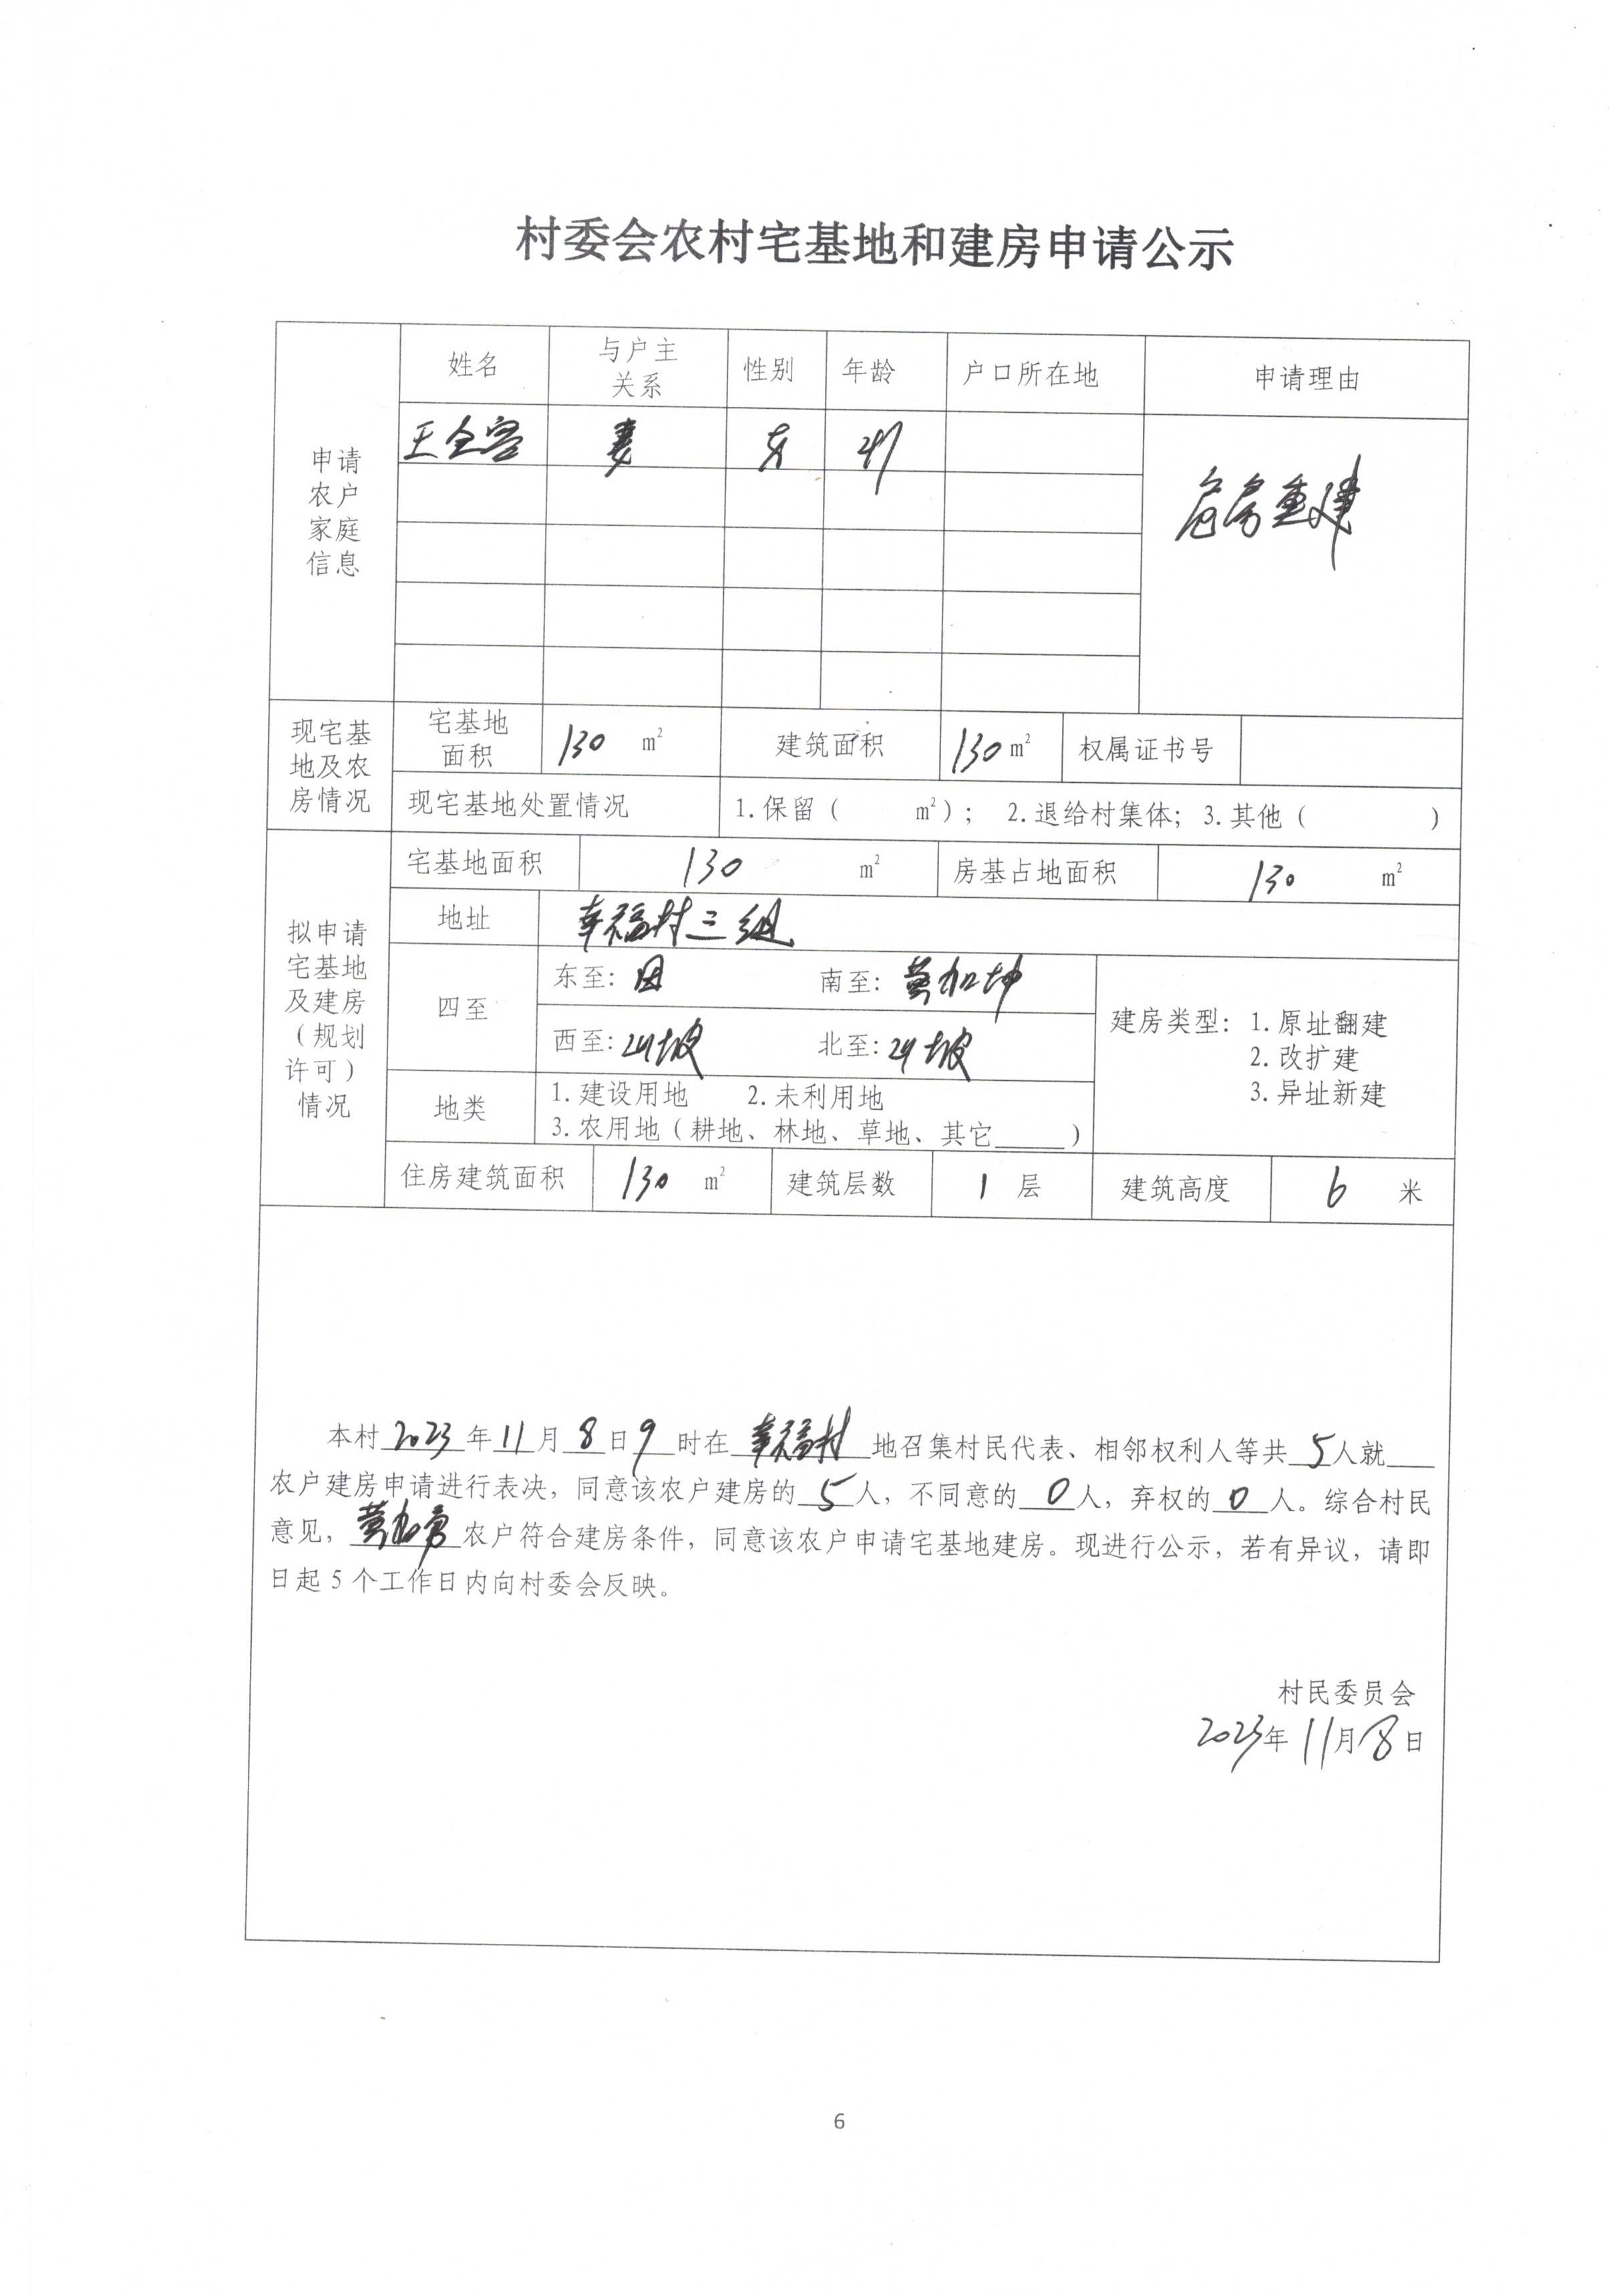 村委会农村宅基地和建房申请公示
申请农户家庭信息
姓名 与户主关系 性别 年龄 户口所在地 申请理由
王全容 妻 女
危房重建
现宅基地及农房情况
宅基地面积 130 m² 建筑面积 130 m² 权属证书号
现宅基地处置情况 1.保留( m²); 2.退给村集体; 3.其他( )
拟申请宅基地及建房(规划许可)情况
宅基地面积 130 m² 房基占地面积 130 m²
地址 幸福村三组
四至 东至: 田 南至: 黄加坤
西至: 山坡 北至: 山坡
建房类型: 1.原址翻建
2.改扩建
3.异址新建
地类 1.建设用地 2.未利用地
3.农用地(耕地、林地、草地、其它______)
住房建筑面积 130 m² 建筑层数 1 层 建筑高度 6 米
本村2023年11月8日9时在幸福村地召集村民代表、相邻权利人等共5人就___
农户建房申请进行表决,同意该农户建房的5人,不同意的0人,弃权的0人。综合村民
意见,黄加勇农户符合建房条件,同意该农户申请宅基地建房。现进行公示,若有异议,请即
日起5个工作日内向村委会反映。
村民委员会
2023年11月8日
6